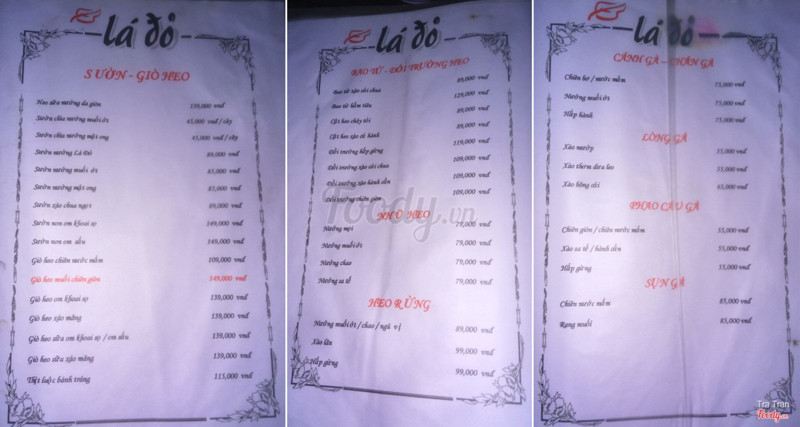 lá đỏ
SƯỜN - GIÒ HEO
Heo sữa nướng da giòn 139,000 vnđ
Sườn chìa nướng muối ớt 45,000 vnđ / cây
Sườn chìa nướng mật ong 45,000 vnđ / cây
Sườn nướng Lá Đỏ 89,000 vnđ
Sườn nướng muối ớt 85,000 vnđ
Sườn nướng mật ong 85,000 vnđ
Sườn xào chua ngọt 89,000 vnđ
Sườn non om khoai sọ 149,000 vnđ
Sườn non om sấu 149,000 vnđ
Giò heo chiên nước mắm 109,000 vnđ
Giò heo muối chiên giòn 149,000 vnđ
Giò heo om khoai sọ 139,000 vnđ
Giò heo xáo măng 139,000 vnđ
Giò heo sữa om khoai sọ / om sấu 139,000 vnđ
Giò heo sữa xáo măng 139,000 vnđ
Thịt luộc bánh tráng 115,000 vnđ
lá đỏ
BAO TỬ - DỒI TRƯỜNG HEO
Bao tử xào cải chua 89,000 vnđ
Bao tử hầm tiêu 129,000 vnđ
Cật heo cháy tỏi 89,000 vnđ
Cật heo xào củ hành 89,000 vnđ
Dồi trường hấp gừng 119,000 vnđ
Dồi trường xào cải chua 109,000 vnđ
Dồi trường xào hành cần 109,000 vnđ
Dồi trường chiên giòn 109,000 vnđ
NHŨ HEO
Nướng mọi 79,000 vnđ
Nướng muối ớt 79,000 vnđ
Nướng chao 79,000 vnđ
Nướng sa tế 79,000 vnđ
HEO RỪNG
Nướng muối ớt / chao / ngũ vị 89,000 vnđ
Xào lăn 99,000 vnđ
Hấp gừng 99,000 vnđ
Foody.vn
lá đỏ
CÁNH GÀ - CHÂN GÀ
Chiên bơ / nước mắm 75,000 vnđ
Nướng muối ớt 75,000 vnđ
Hấp hành 75,000 vnđ
LÒNG GÀ
Xào mướp 55,000 vnđ
Xào thơm dưa leo 55,000 vnđ
Xào bông cải 65,000 vnđ
PHAO CÂU GÀ
Chiên giòn / chiên nước mắm 55,000 vnđ
Xào sa tế / hành cần 55,000 vnđ
Hấp gừng 55,000 vnđ
SỤN GÀ
Chiên nước mắm 85,000 vnđ
Rang muối 85,000 vnđ
Tra Tran
Foody.vn